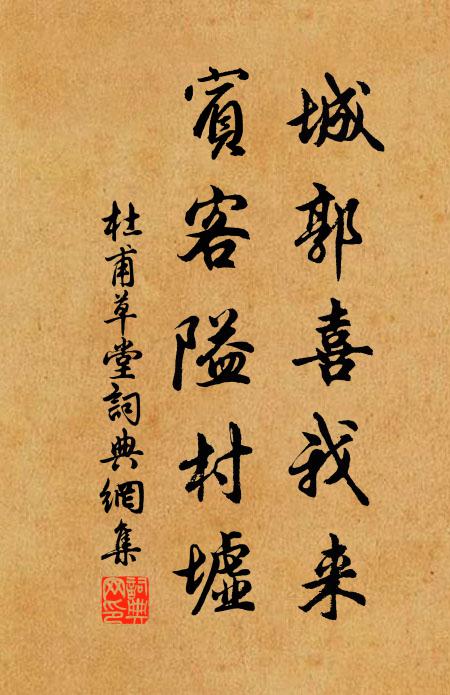 城郭喜我来
賓客隘村墟
杜甫草堂詞典網集
詞典网印